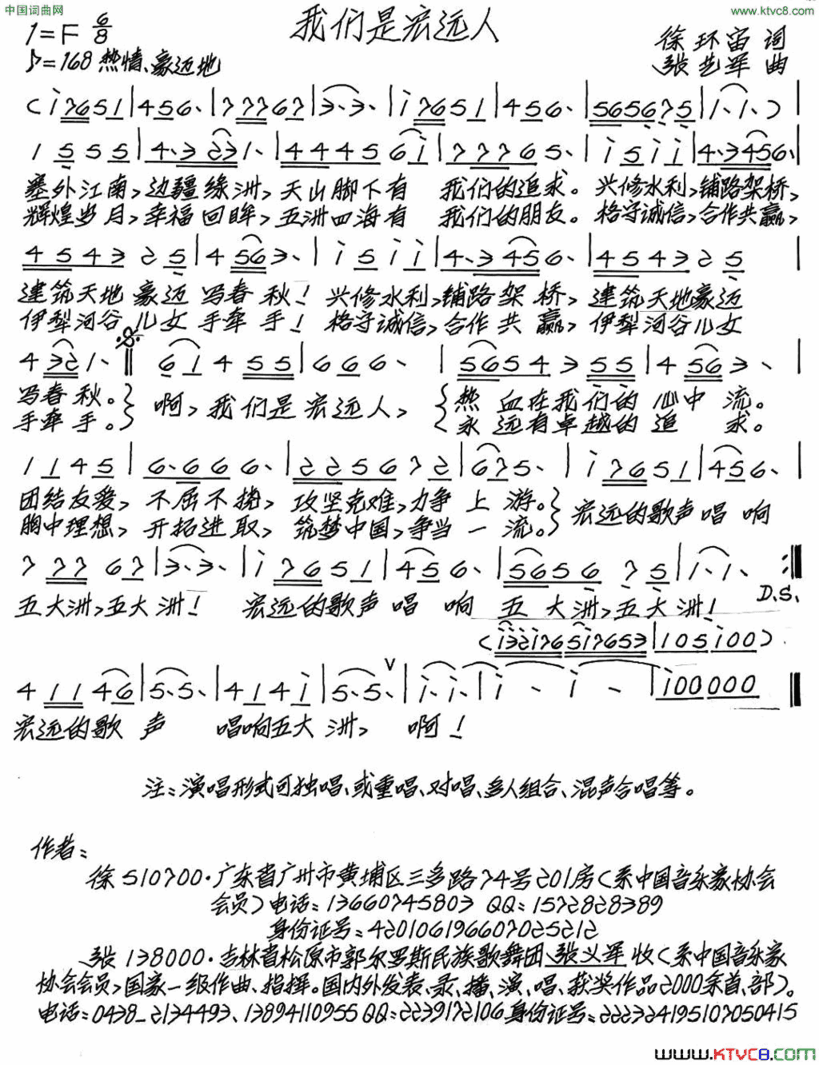 中国词曲网
www.ktvc8.com
我们是宏远人
1=F 6/8
♪=168 热情、豪迈地
徐环宙 词
张艺军 曲
(i7651|456·|77767|3·3·|i7651|456·|565675|1·1·)|
1555|4·3231·|444561|777765·|i5ii|4·3456·|
塞外江南,边疆绿洲,天山脚下有 我们的追求。兴修水利,铺路架桥,
辉煌岁月,幸福回眸,五洲四海有 我们的朋友。恪守诚信,合作共赢,
454325|4563·|i5ii|4·3456·|454325|
建筑天地豪迈写春秋!兴修水利,铺路架桥,建筑天地豪迈
伊犁河谷儿女手牵手!恪守诚信,合作共赢,伊犁河谷儿女
4321·‖61455|666·|5654355|4563·|
写春秋。 啊,我们是宏远人, 热血在我们的心中流。
手牵手。 永远有卓越的追求。
1145|6·666·|225672|675·|i7651|456·|
团结友爱,不屈不挠,攻坚克难,力争上游。 宏远的歌声唱响
胸中理想,开拓进取,筑梦中国,争当一流。
77767|3·3·|i7651|456·|565675|1·1·:‖
D.S.
五大洲,五大洲! 宏远的歌声唱响五大洲,五大洲!
(i32i765i7653|105i00)
41146|5·5·|414i|5·5·|i·i·|i·i·|i00000‖
宏远的歌声 唱响五大洲, 啊!
注:演唱形式可独唱、或重唱、对唱、多人组合、混声合唱等。
作者:
徐 510700·广东省广州市黄埔区三多路74号201房(系中国音乐家协会
会员)电话:13660745803 QQ:1572828389
身份证号:420106196607025212
张 138000·吉林省松原市郭尔罗斯民族歌舞团、张义军 收(系中国音乐家
协会会员,国家一级作曲、指挥。国内外发表、录、播、演、唱、获奖作品2000余首、部)。
电话:0438-2134493、13894110955 QQ:2239172106 身份证号:222324195107050415
www.KTVC8.com